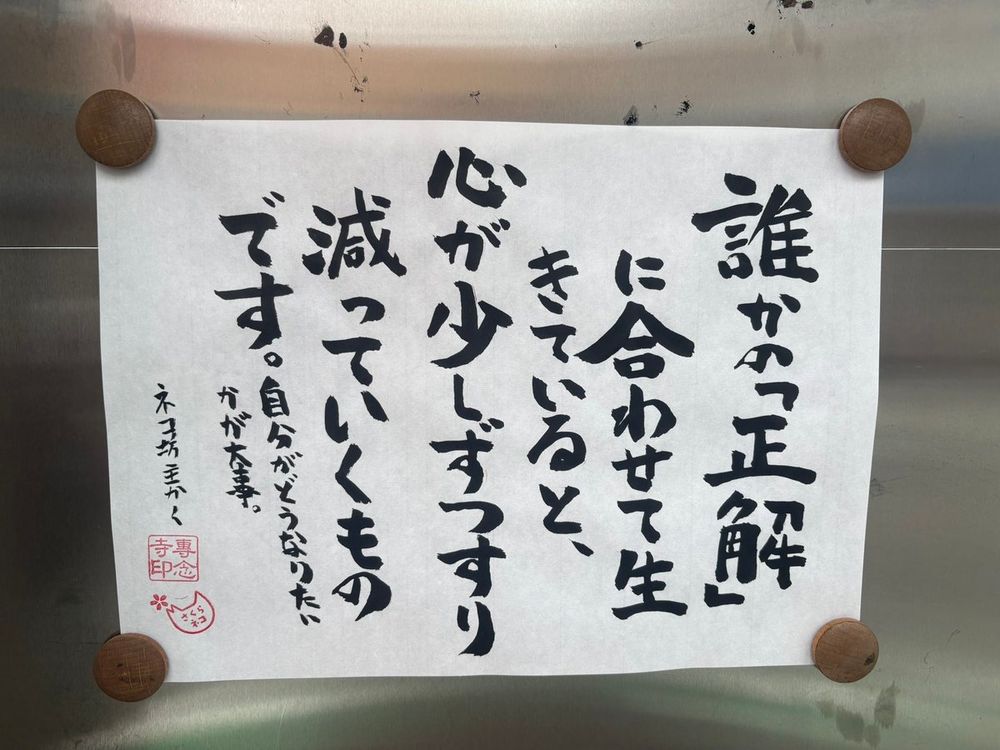 誰かの「正解」
に合わせて生
きていると、
心が少しずつすり
減っていくもの
です。
自分がどうなりたい
かが大事。
ネコ坊主かく
専念
寺印
さくら
ネコ